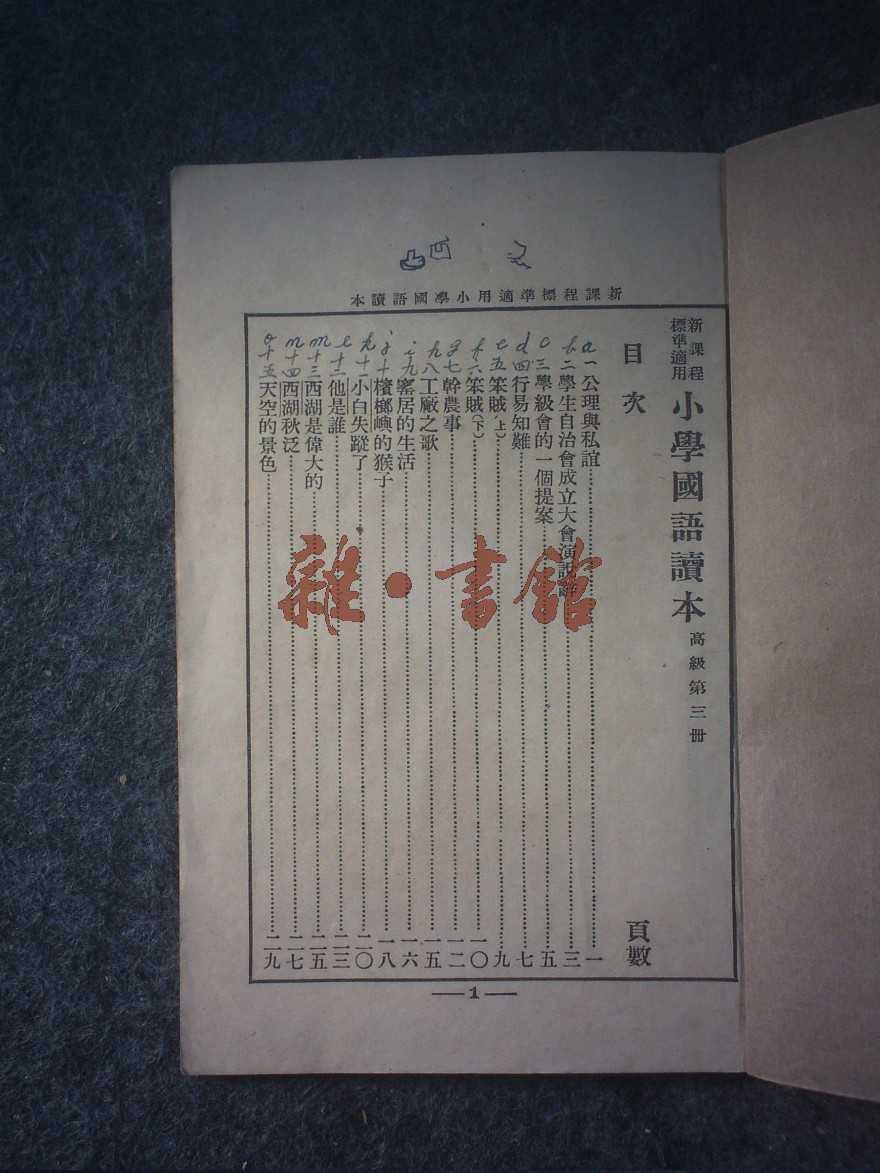 新課程標準適用小學國語讀本
新課程
標準適用
小學國語讀本
高級第三冊
目次
頁數
a 一 公理與私誼 一
b 二 學生自治會成立大會演說辭 三
c 三 學級會的一個提案 五
d 四 行易知難 七
e 五 笨賊(上) 九
f 六 笨賊(下) 一〇
g 七 幹農事 一二
h 八 工廠之歌 一五
i 九 窰居的生活 一六
j 十 檳榔嶼的猴子 一八
k 十一 小白失蹤了 二〇
l 十二 他是誰 二三
m 十三 西湖是偉大的 二五
n 十四 西湖秋泛 二七
o 十五 天空的景色 二九
1
雜·書館